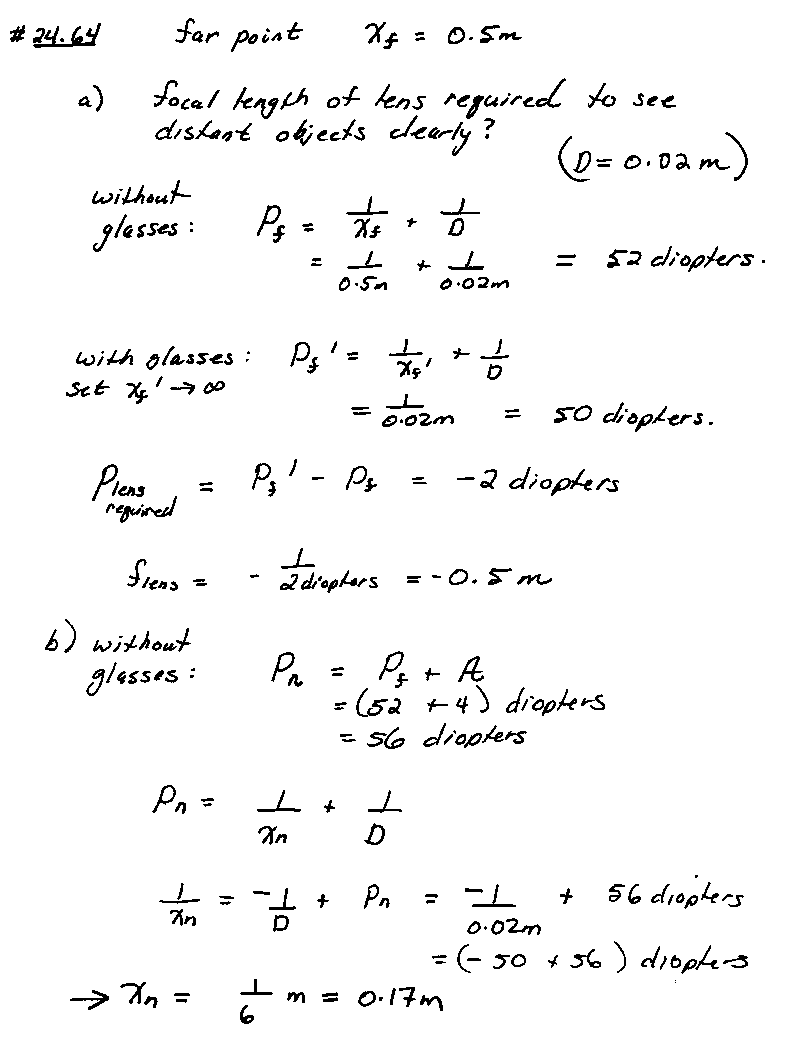 # 24.64 far point x_f = 0.5m
a) focal length of lens required to see
distant objects clearly?
(D = 0.02 m)
without
glasses: P_f = 1/x_f + 1/D
= 1/0.5m + 1/0.02m = 52 diopters.
with glasses: P_f' = 1/x_f' + 1/D
set x_f' → ∞
= 1/0.02m = 50 diopters.
P_lens required = P_f' - P_f = -2 diopters
f_lens = - 1/2 diopters = -0.5 m
b) without
glasses: P_n = P_f + A
= (52 + 4) diopters
= 56 diopters
P_n = 1/x_n + 1/D
1/x_n = -1/D + P_n = -1/0.02m + 56 diopters
= (-50 + 56) diopters
→ x_n = 1/6 m = 0.17m